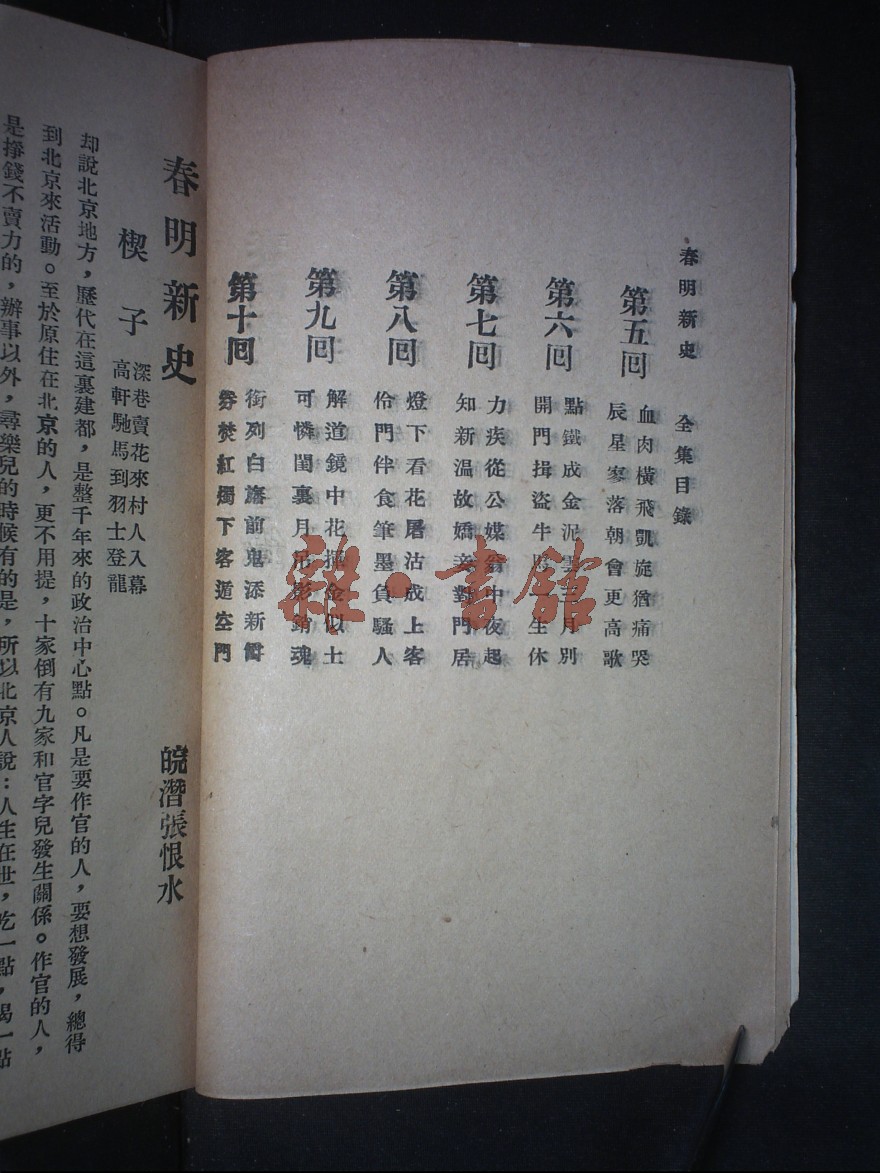 春明新史 全集目錄
第五回
血肉橫飛凱旋猶痛哭
辰星寥落朝會更高歌
第六回
點鐵成金泥雲三月別
開門揖盜牛馬一生休
第七回
力疾從公媒翁中夜起
知新温故嬌妾對門居
第八回
燈下看花屠沽成上客
伶門伴食筆墨負騷人
第九回
解道鏡中花揮金似土
可憐閨裏月吊影銷魂
第十回
銜列白旗前鬼添新爵
券焚紅燭下客遁空門
雜·書館
春明新史
皖潛張恨水
楔子
深巷賣花來村人入幕
高軒馳馬到羽士登龍
却說北京地方，歷代在這裏建都，是整千年來的政治中心點。凡是要作官的人，要想發展，總得
到北京來活動。至於原住在北京的人，更不用提，十家倒有九家和官字兒發生關係。作官的人，
是掙錢不賣力的，辦事以外，尋樂兒的時候有的是，所以北京人說：人生在世，吃一點，喝一點